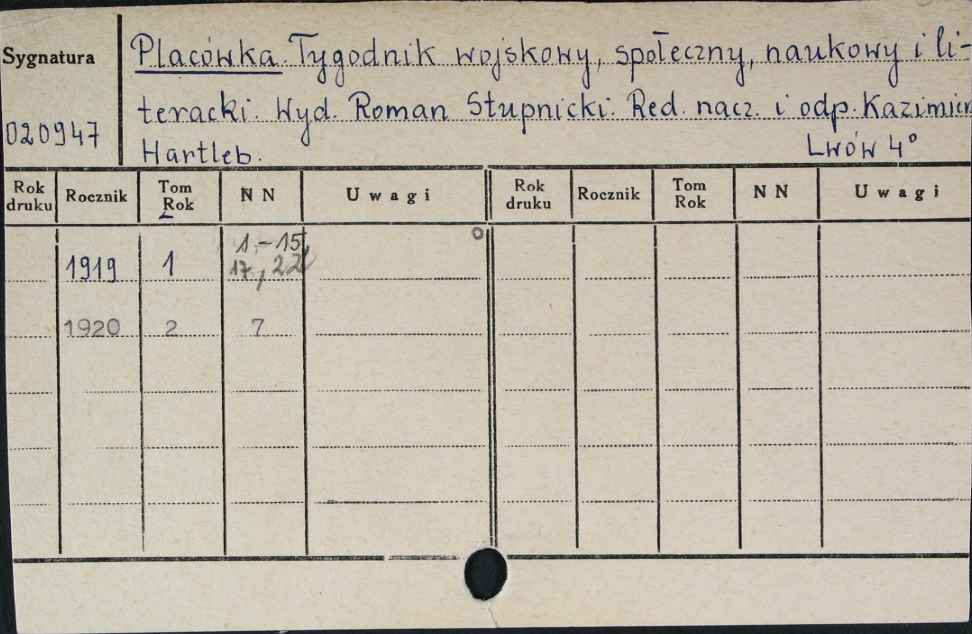 Sygnatura
020947
Placówka. Tygodnik wojskowy, społeczny, naukowy i li-
teracki. Wyd. Roman Stupnicki. Red. nacz. i odp. Kazimierz
Hartleb. Lwów 4°
Rok druku Rocznik Tom Rok N N Uwagi Rok druku Rocznik Tom Rok N N Uwagi
1919 1 1-15,
17, 22
1920 2 7